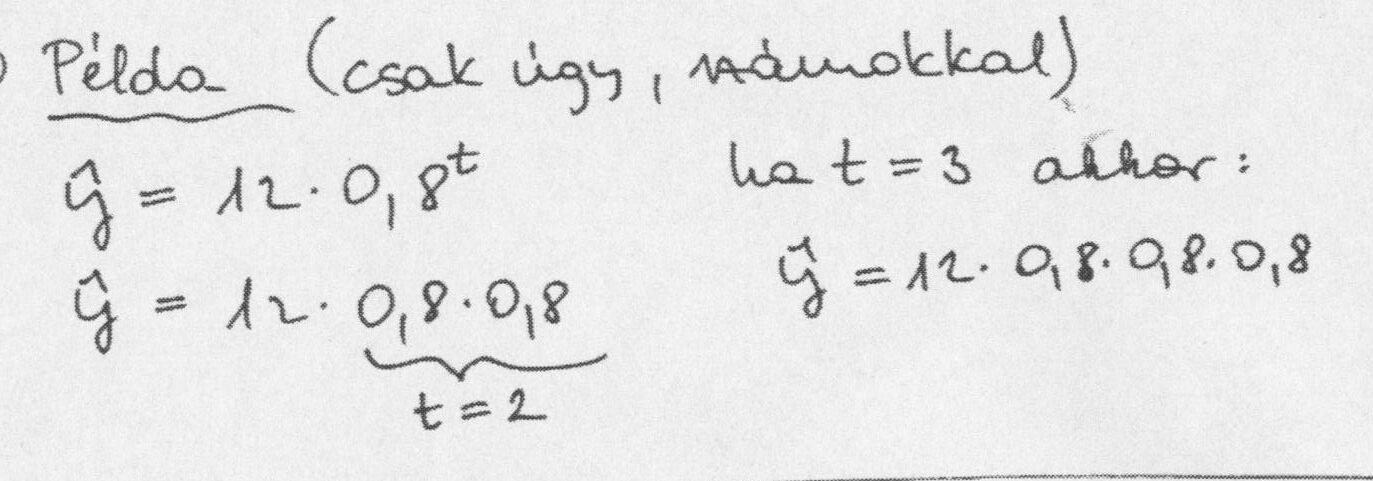 Példa (csak úgy, számokkal)
ŷ = 12 · 0,8^t
ŷ = 12 · 0,8 · 0,8
t = 2
ha t = 3 akkor :
ŷ = 12 · 0,8 · 0,8 · 0,8